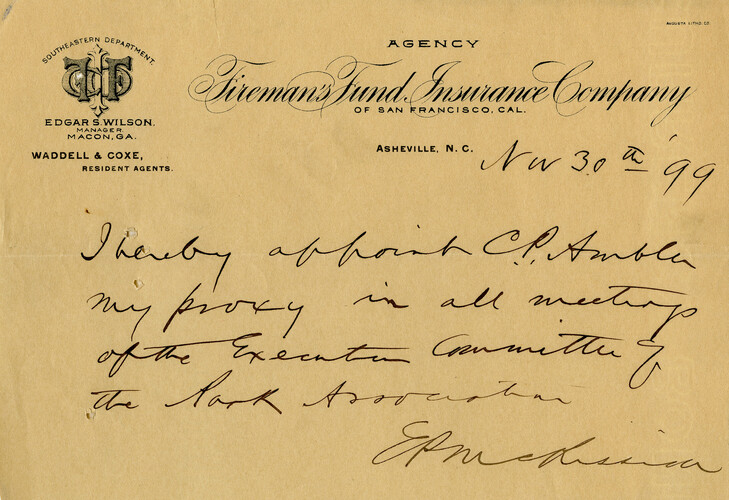 AUGUSTA LITHO. CO.
SOUTHEASTERN DEPARTMENT.
EDGAR S. WILSON.
MANAGER.
MACON, GA.
WADDELL & COXE,
RESIDENT AGENTS.
AGENCY
Fireman's Fund Insurance Company
OF SAN FRANCISCO, CAL.
ASHEVILLE, N. C. Nov 30th '99
I hereby appoint C.P. Ambler
my proxy in all meetings
of the Executive Committee of
the Park Association
E P McKissick